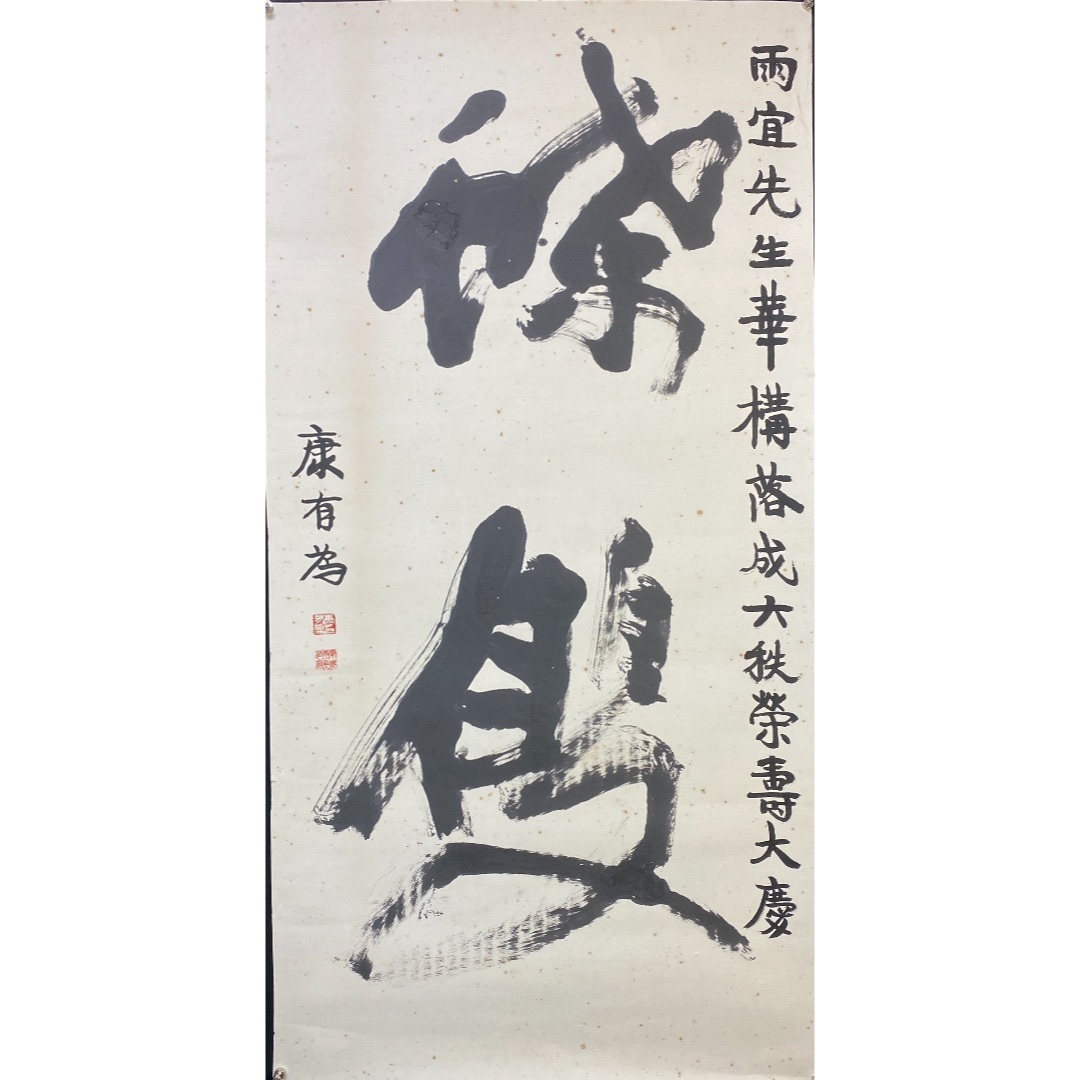 雨宜先生華構落成六秩榮壽大慶
雙
康有為